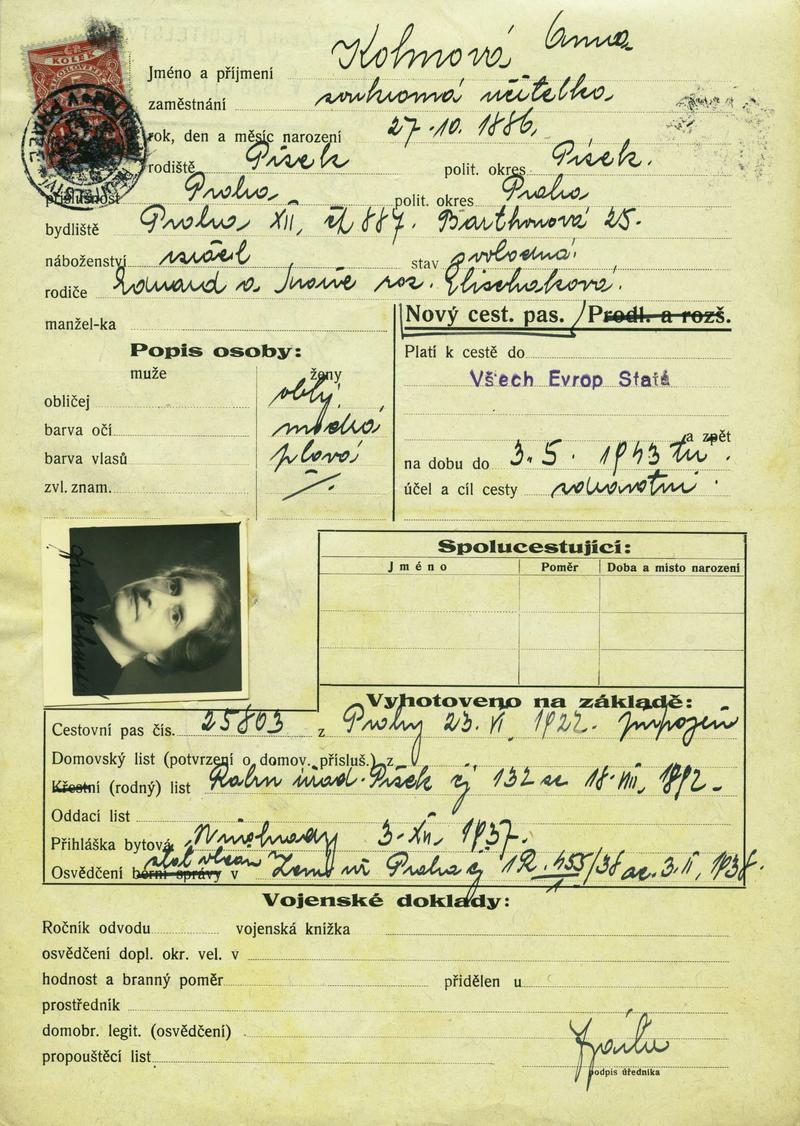 KOLEK
Jméno a příjmení Kohnová Anna
zaměstnání soukromá učitelka
rok, den a měsíc narození 27.10. 1886,
rodiště Písek polit. okres Písek.
příslušnost Praha polit. okres Praha
bydliště Praha XII, čp 887. Barthouová 25.
náboženství stav svobodná
rodiče Eduard a roz. Elischaková.
manžel-ka
Nový cest. pas. / Prodl. a rozš.
Popis osoby:
muže ženy
obličej oblý
barva očí modrá
barva vlasů plavá
zvl. znam. /.
Platí k cestě do
Všech Evrop Států
a zpět
na dobu do 3.5. 1943
účel a cíl cesty zdravotní
Anna Kohnová
Spolucestující:
Jméno Poměr Doba a místo narození
Vyhotoveno na základě:
Cestovní pas čís. 25803 z Prahy 23. VI. 1922.
Domovský list (potvrzení o domov. přísluš.) z
Křestní (rodný) list Písek čj 132 ze 18. VIII. 1892.
Oddací list
Přihláška bytová Vinohrady 3. XII. 1937.
Osvědčení berní správy v stát. Praha čj 3. II. 1938.
Vojenské doklady:
Ročník odvodu vojenská knížka
osvědčení dopl. okr. vel. v
hodnost a branný poměr přidělen u
prostředník
domobr. legit. (osvědčení)
propouštěcí list
podpis úředníka